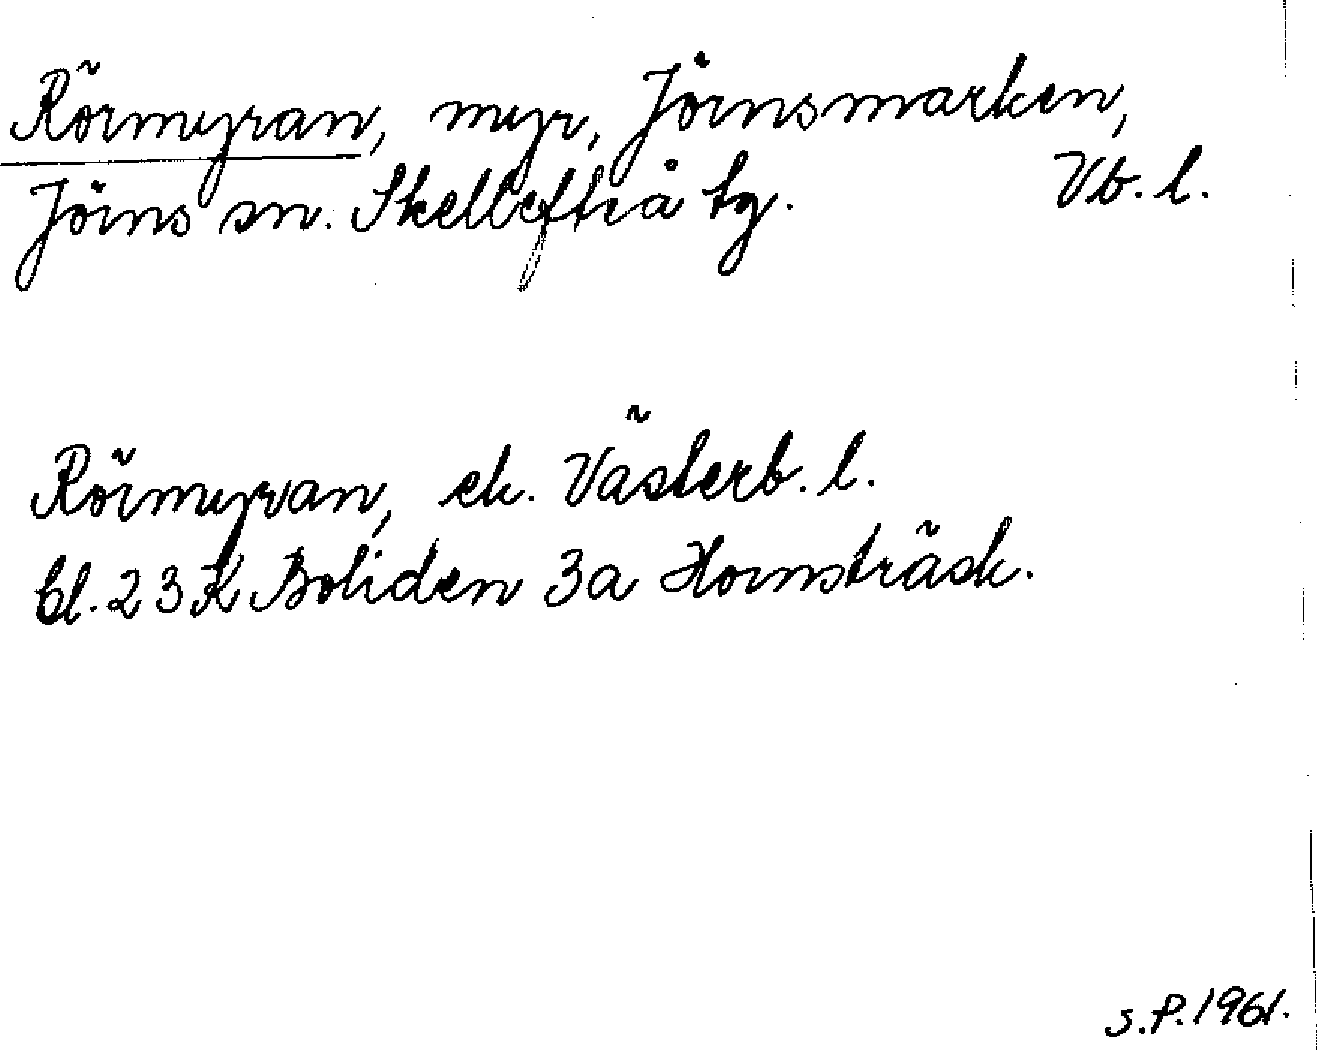 Rörmyran, myr, Jörnsmarken,
Jörns sn. Skellefteå tg. Vb. l.
Rörmyran, ek. Västerb. l.
bl. 23 K Boliden 3a Hornsträsk.
S.P. 1961.